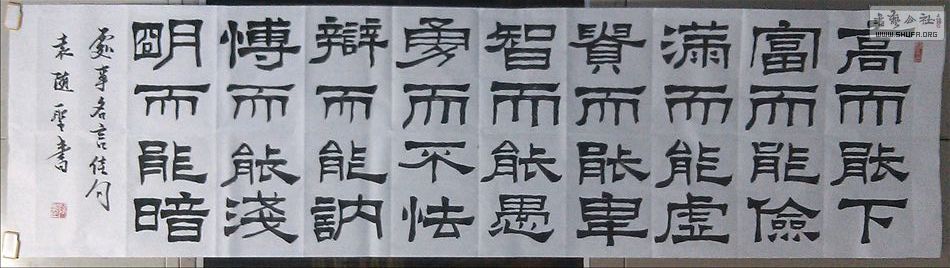 高而能下
富而能儉
滿而能虛
貴而能卑
智而能愚
勇而不怯
辯而能訥
愽而能淺
明而能暗
處事名言佳句
袁随聖書
书艺公社
WWW.SHUFA.ORG